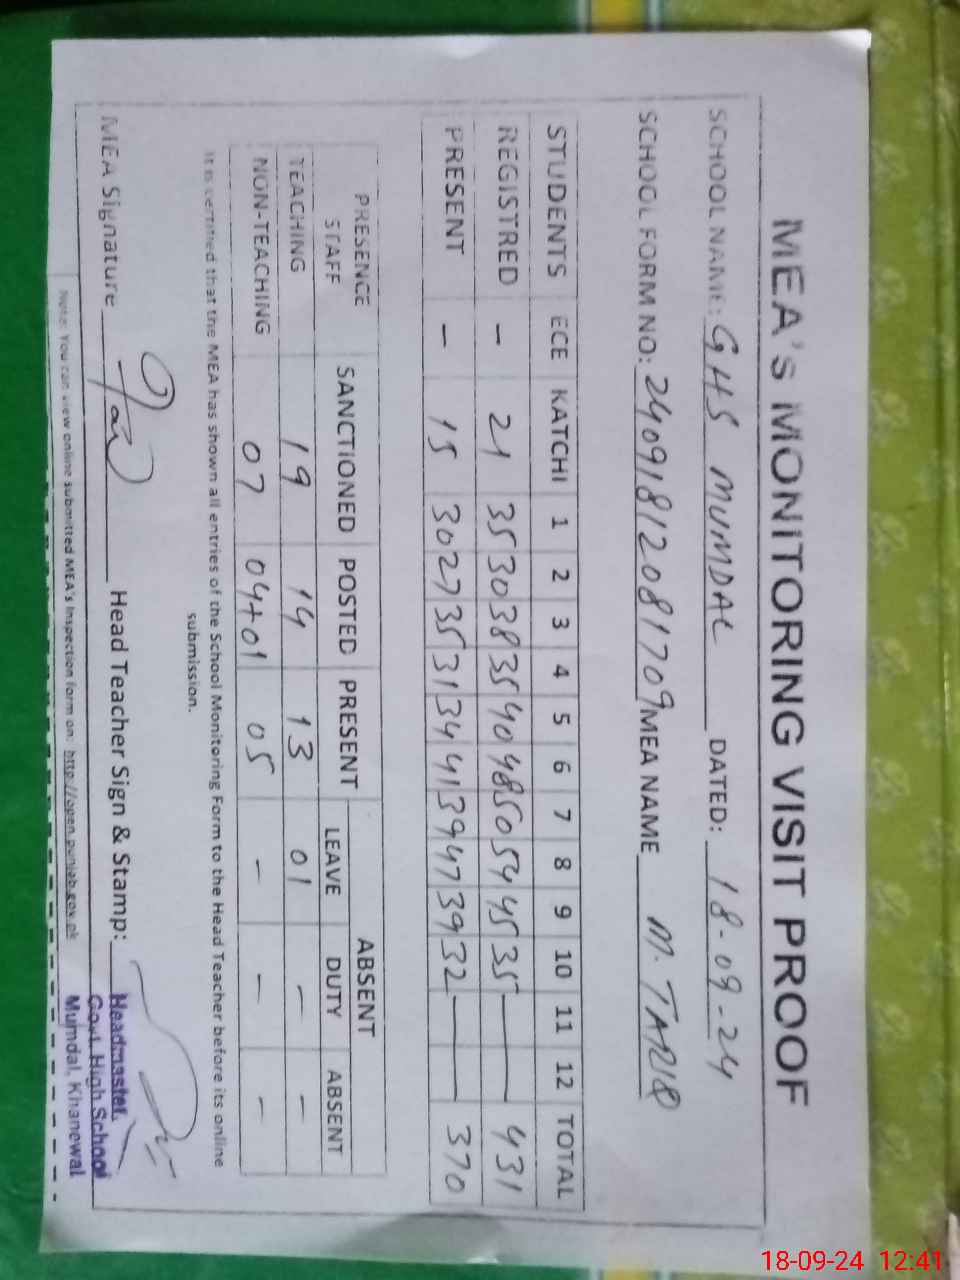 MEA's MONITORING VISIT PROOF
SCHOOL NAME: GHS MUMDAL DATED: 18-09-24
SCHOOL FORM NO: 24091812081709 MEA NAME M. TARIQ
STUDENTS ECE KATCHI 1 2 3 4 5 6 7 8 9 10 11 12 TOTAL
REGISTRED - 21 35 30 38 35 40 48 50 54 45 35 — — 431
PRESENT - 15 30 27 35 31 34 41 39 47 39 32 — — 370
PRESENCE ABSENT
STAFF SANCTIONED POSTED PRESENT LEAVE DUTY ABSENT
TEACHING 19 14 13 01 - -
NON-TEACHING 07 04+01 05 - - -
It is certified that the MEA has shown all entries of the School Monitoring Form to the Head Teacher before its online
submission.
MEA Signature Head Teacher Sign & Stamp:
Headmaster.
Govt. High School
Mumdal, Khanewal
Note: You can view online submitted MEA's Inspection form on: http://open.punjab.gov.pk
18-09-24 12:41